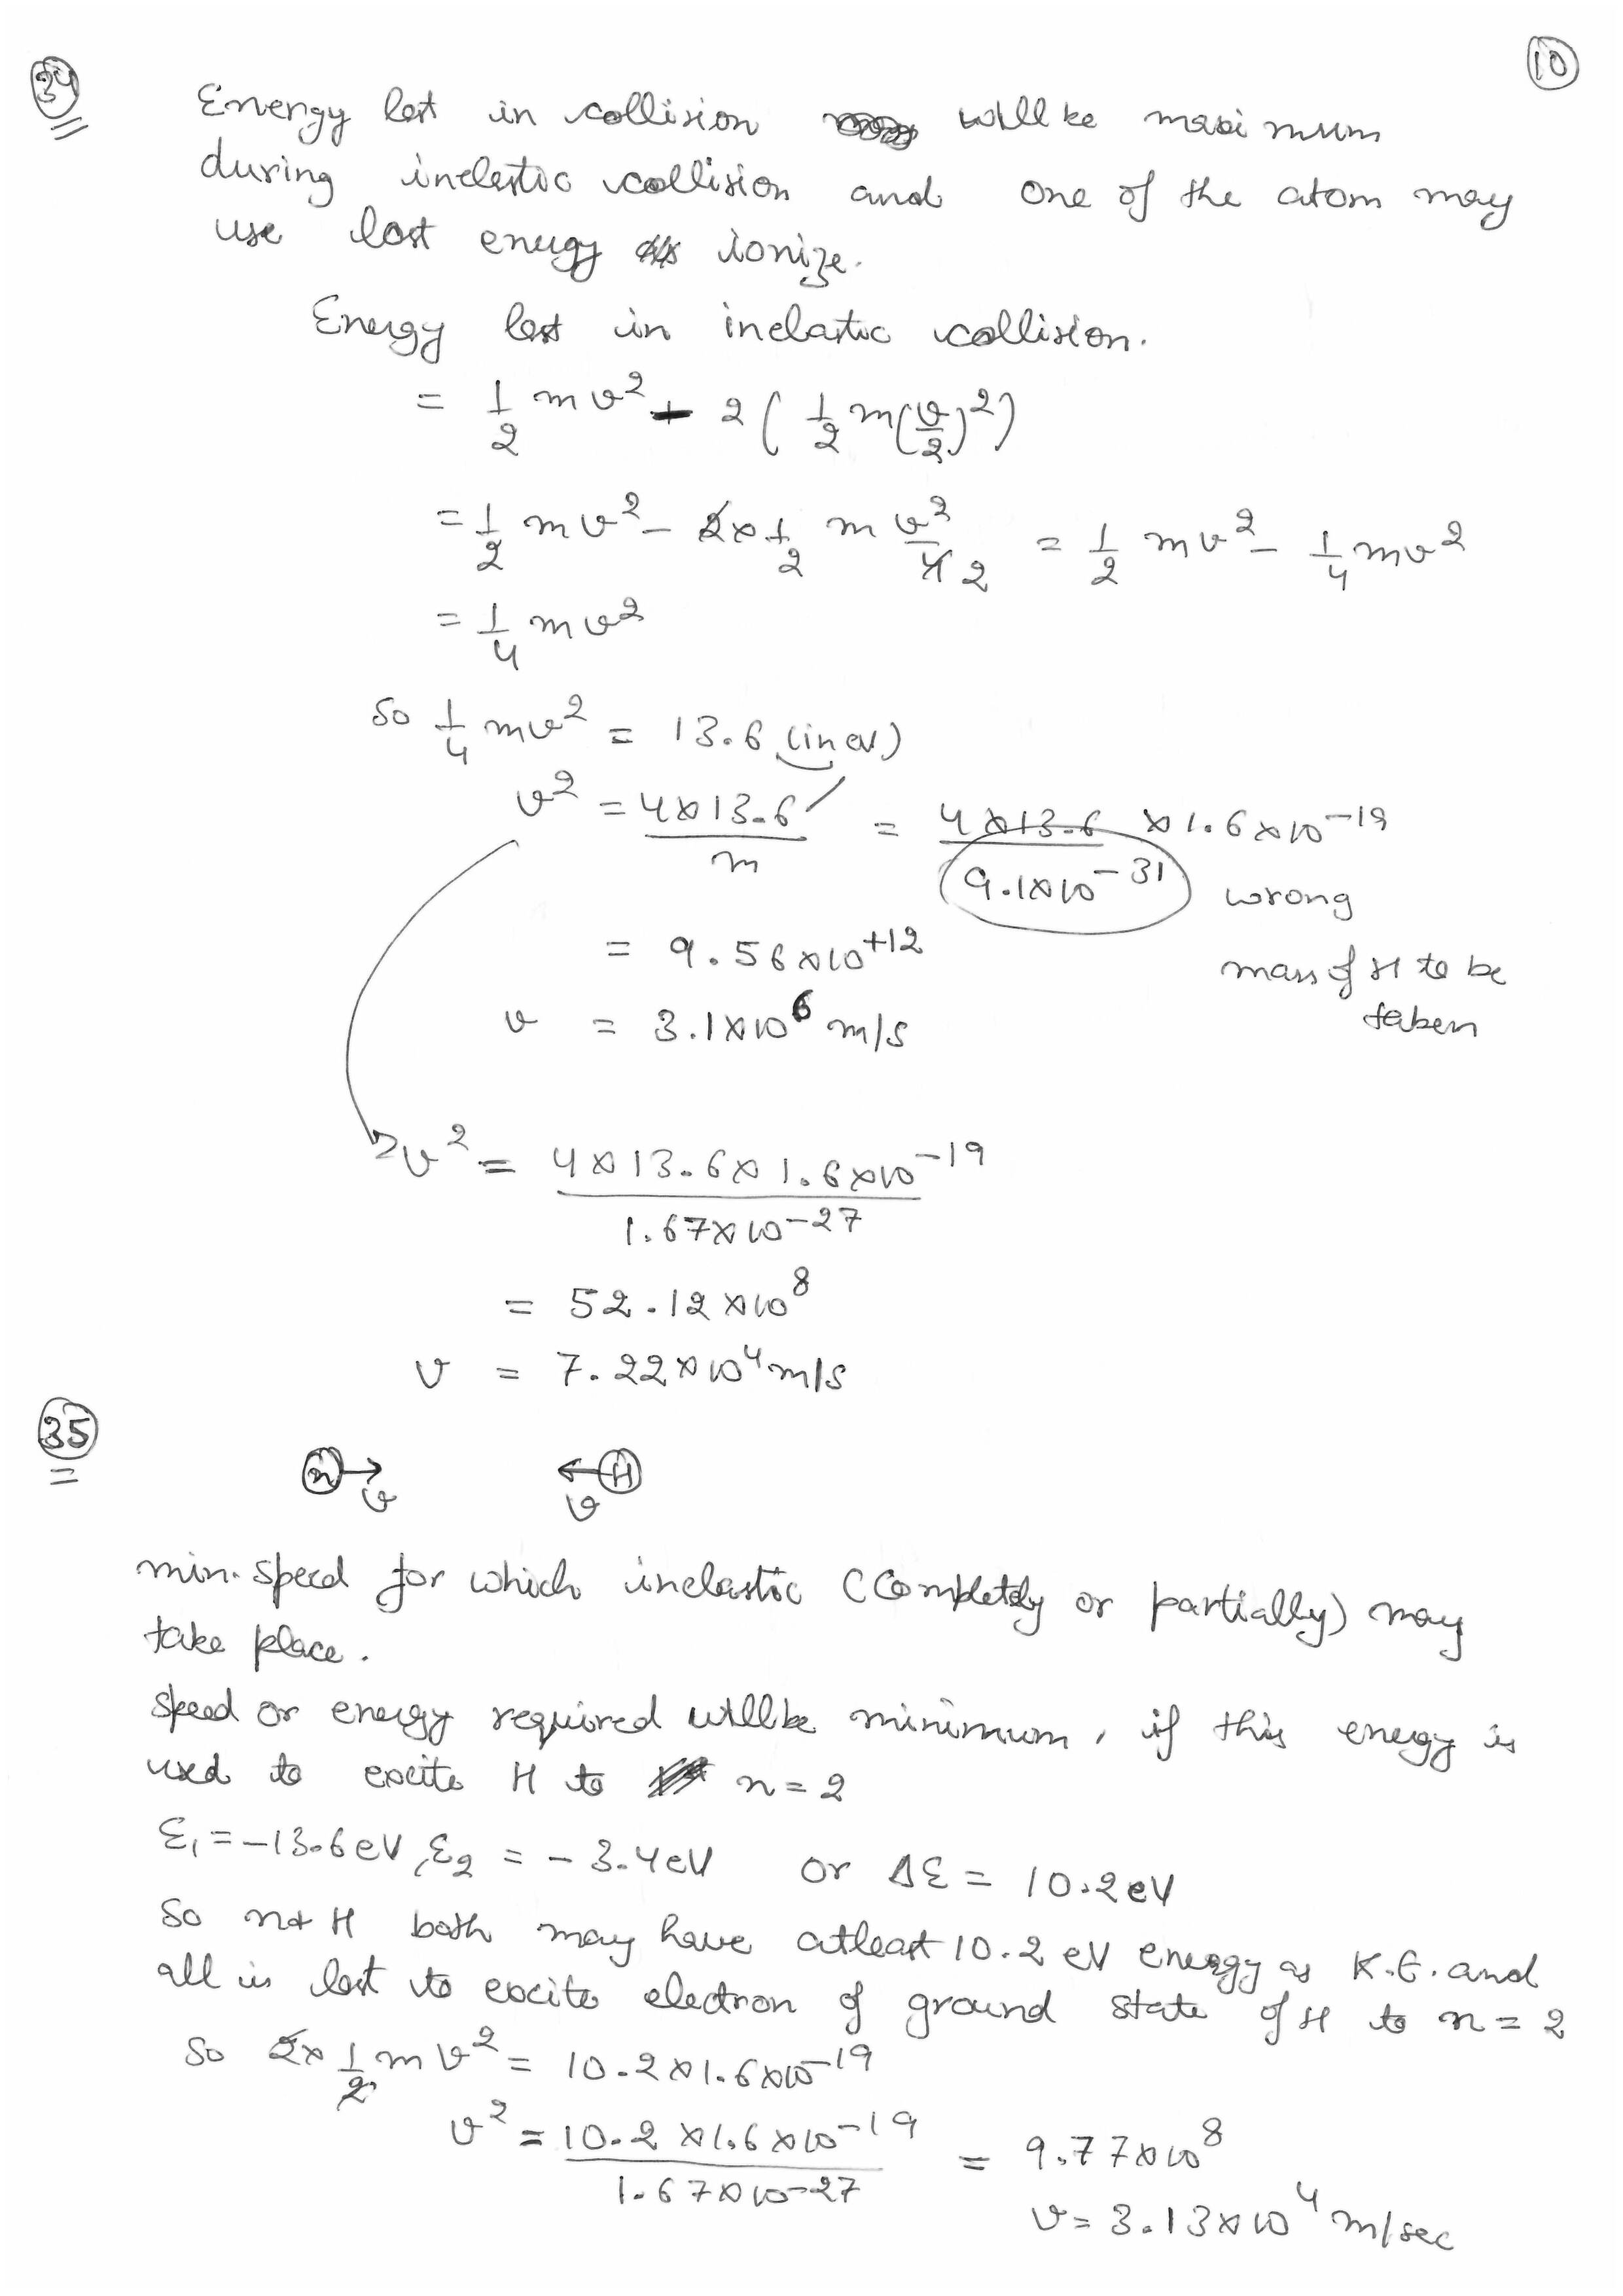 10
34
Energy lost in collision will be maximum
during inelastic collision and one of the atom may
use lost energy ionize.
Energy lost in inelastic collision.
= 1/2 mv² - 2(1/2 m(v/2)²)
= 1/2 mv² - 2×1/2 m v²/4 2 = 1/2 mv² - 1/4 mv²
= 1/4 mv²
So 1/4 mv² = 13.6 (in eV)
v² = 4×13.6/m = 4×13.6/9.1×10⁻³¹ ×1.6×10⁻¹⁹
wrong
= 9.56×10⁺¹²
mass of H to be
taken
v = 3.1×10⁶ m/s
v² = 4×13.6×1.6×10⁻¹⁹/1.67×10⁻²⁷
= 52.12×10⁸
v = 7.22×10⁴ m/s
35
n → v ← H v
min. speed for which inelastic (Completely or partially) may
take place.
Speed or energy required will be minimum, if this energy is
used to excite H to n=2
E₁ = -13.6 eV, E₂ = -3.4 eV or ΔE = 10.2 eV
So n & H both may have atleast 10.2 eV energy as K.E. and
all is lost to excite electron of ground state of H to n = 2
So 2×1/2 mv² = 10.2×1.6×10⁻¹⁹
v² = 10.2×1.6×10⁻¹⁹/1.67×10⁻²⁷ = 9.77×10⁸
v = 3.13×10⁴ m/sec